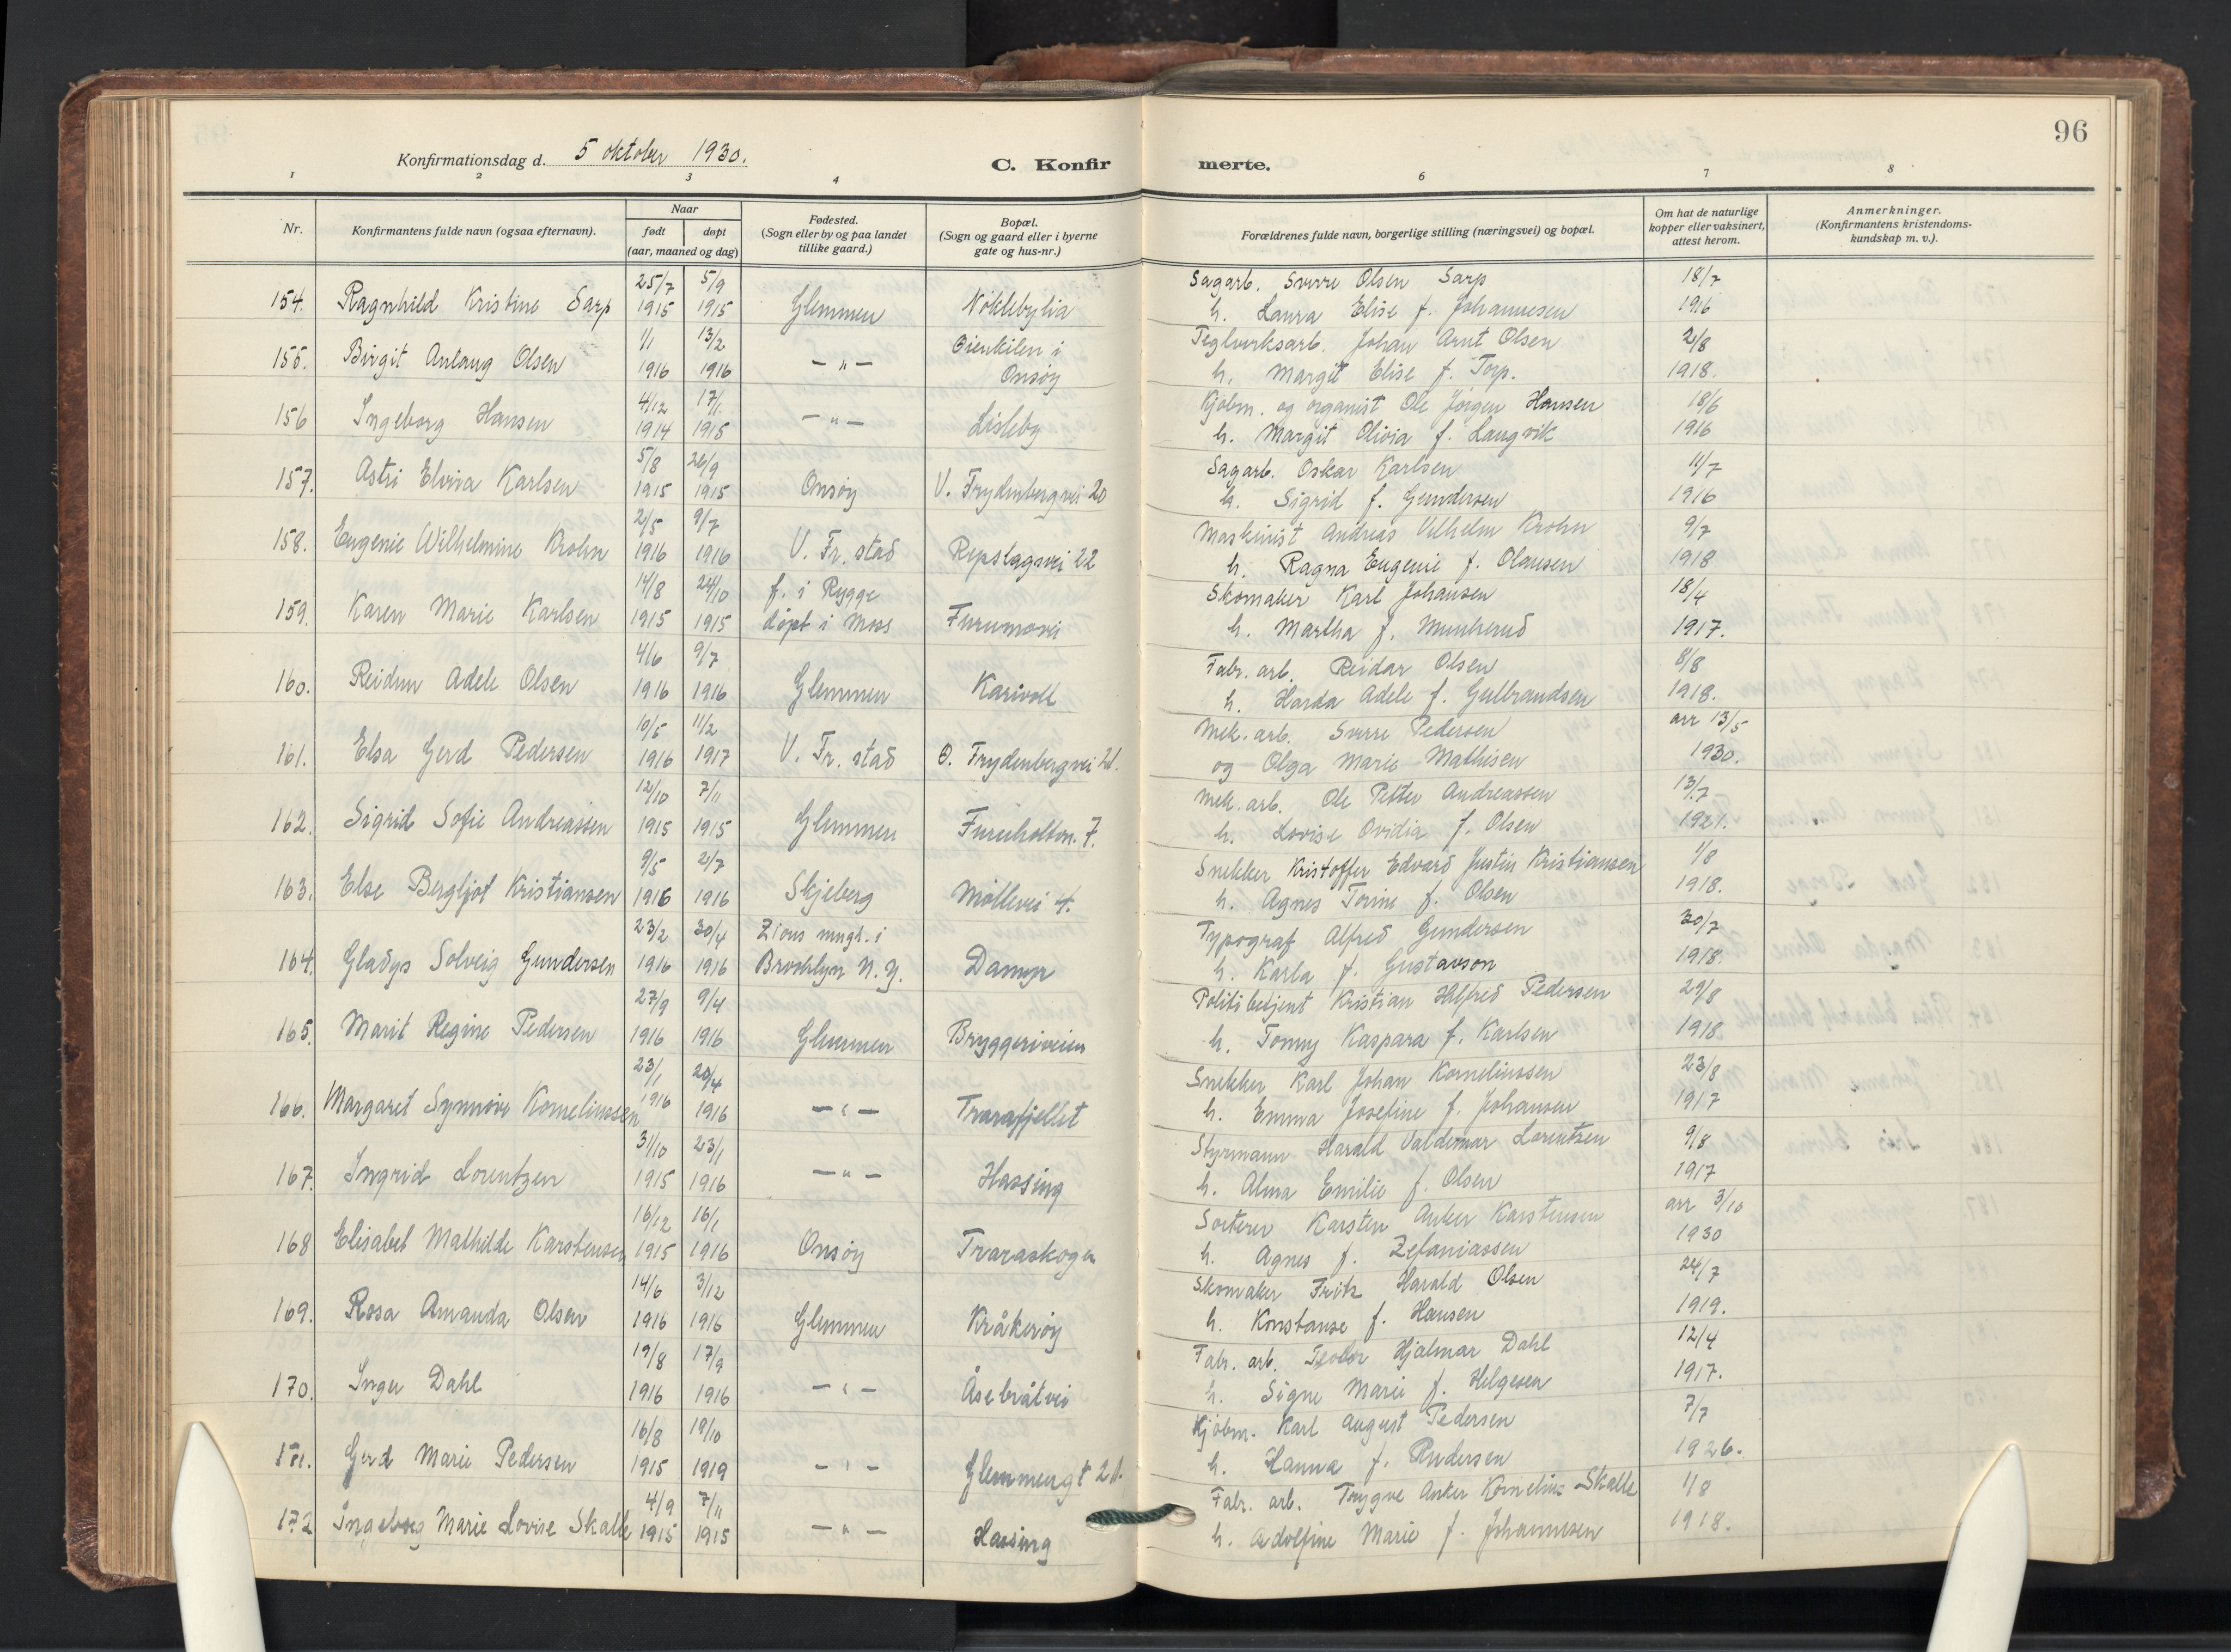 96
Konfirmationsdag d. 5 oktober 1930.
C. Konfirmerte.
1 2 3 4 6 7 8
Nr.
Konfirmantens fulde navn (ogsaa efternavn).
Naar
født døpt
(aar, maaned og dag)
Fødested.
(Sogn eller by og paa landet
tillike gaard.)
Bopæl.
(Sogn og gaard eller i byerne
gate og hus-nr.)
Forældrenes fulde navn, borgerlige stilling (næringsvei) og bopæl.
Om hat de naturlige
kopper eller vaksinert,
attest herom.
Anmerkninger.
(Konfirmantens kristendoms-
kundskap m. v.).
25/7 5/9 Sagarb. Sverre Olsen Sarp 18/7
154. Ragnhild Kristine Sarp 1915 1915 Glemmen Nöklebylia h. Laura Elise f. Johannesen 1916
1/1 13/2 Öienkilen i Teglverksarb. Johan Arnt Olsen 2/8
155. Birgit Anlaug Olsen 1916 1916 — " — Onsöy h. Margit Elise f. Torp. 1918.
4/12 17/1 Kjöbm. og organist Ole Jörgen Hansen 18/6
156 Ingeborg Hansen 1914 1915 — " — Lisleby h. Margit Olivia f. Langvik 1916
5/8 26/9 Sagarb. Oskar Karlsen 11/7
157. Astri Elvira Karlsen 1915 1915 Onsöy V. Frydenbergvei 20 h. Sigrid f. Gundersen 1916
2/5 9/7 Maskinist Andreas Vilhelm Krohn 9/7
158. Eugenie Wilhelmine Krohn 1916 1916 V. Fr. stad Repslagervei 22 h. Ragna Eugenie f. Olausen 1918
14/8 24/10 f. i Rygge Skomaker Karl Johansen 18/4
159. Karen Marie Karlsen 1915 1915 döpt i Moss Furumovei h. Martha f. 1917.
4/6 9/7 Fabr. arb. Reidar Olsen 8/8
160. Reidun Adele Olsen 1916 1916 Glemmen Karivoll h. Harda Adele f. Gulbrandsen 1918.
10/5 11/2 Mek. arb. Sverre Pedersen arr 13/5
161. Elsa Gerd Pedersen 1916 1917 V. Fr. stad Ö. Frydenbergvei 21. og Olga Marie Mathisen 1930.
12/10 7/11 Mek. arb. Ole Petter Andreassen 13/7
162. Sigrid Sofie Andreassen 1915 1915 Glemmen Fureholtvn. 7. h. Lovise Ovidia f. Olsen 1921.
9/5 2/7 Snekker Kristoffer Edvard Justin Kristiansen 1/8
163. Else Bergljot Kristiansen 1916 1916 Skjeberg Möllevei 4. h. Agnes Torine f. Olsen 1918.
23/2 30/4 Zions mngh. i Typograf Alfred Gundersen 30/7
164. Gladys Solveig Gundersen 1916 1916 Brooklyn N.Y. Damyr h. Karla f. Gustavson 1918.
27/9 9/4 Politibetjent Kristian Hilfred Pedersen 29/8
165. Marit Regine Pedersen 1916 1916 Glemmen Bryggeriveien h. Tomny Kaspara f. Karlsen 1918
23/1 20/4 Snekker Karl Johan Korneliussen 23/8
166. Margaret Synnöve Korneliussen 1916 1916 — " — Trarafjellet h. Emma Josefine f. Johansen 1917
31/10 23/1 Styrmann Harald Valdemar Lorentzen 9/8
167. Ingrid Lorentzen 1915 1916 — " — Hassing h. Alma Emilie f. Olsen 1917
16/12 16/1 Sorterer Karsten Anker Karstensen arr 3/10
168 Elisabet Mathilde Karstensen 1915 1916 Onsöy Traraskogen h. Agnes f. Zefaniassen 1930
14/6 3/12 Skomaker Fritz Harald Olsen 24/7
169. Rosa Amanda Olsen 1916 1916 Glemmen Kråkeröy h. Konstanse f. Hansen 1919.
19/8 17/9 Fabr. arb. Teodor Hjalmar Dahl 12/4
170. Inger Dahl 1916 1916 — " — Åsebråtvei h. Signe Marie f. Helgesen 1917.
16/8 19/10 Kjöbm. Karl August Pedersen 7/7
171. Gerd Marie Pedersen 1915 1919 — " — Glemmengt 21. h. Hanna f. Andersen 1926.
4/9 7/11 Fabr. arb. Trygve Anker Kornelius Skalle 1/8
172 Ingeborg Marie Lovise Skalle 1915 1915 — " — Hassing h. Adolfine Marie f. Johannesen 1918.